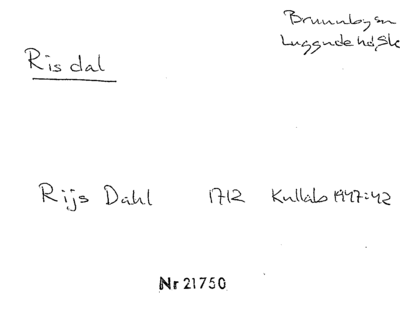 Brunnby sn
Luggude hd, Sk
Ris dal
Rijs Dahl 1712 Kullab 1947:42
Nr 21750